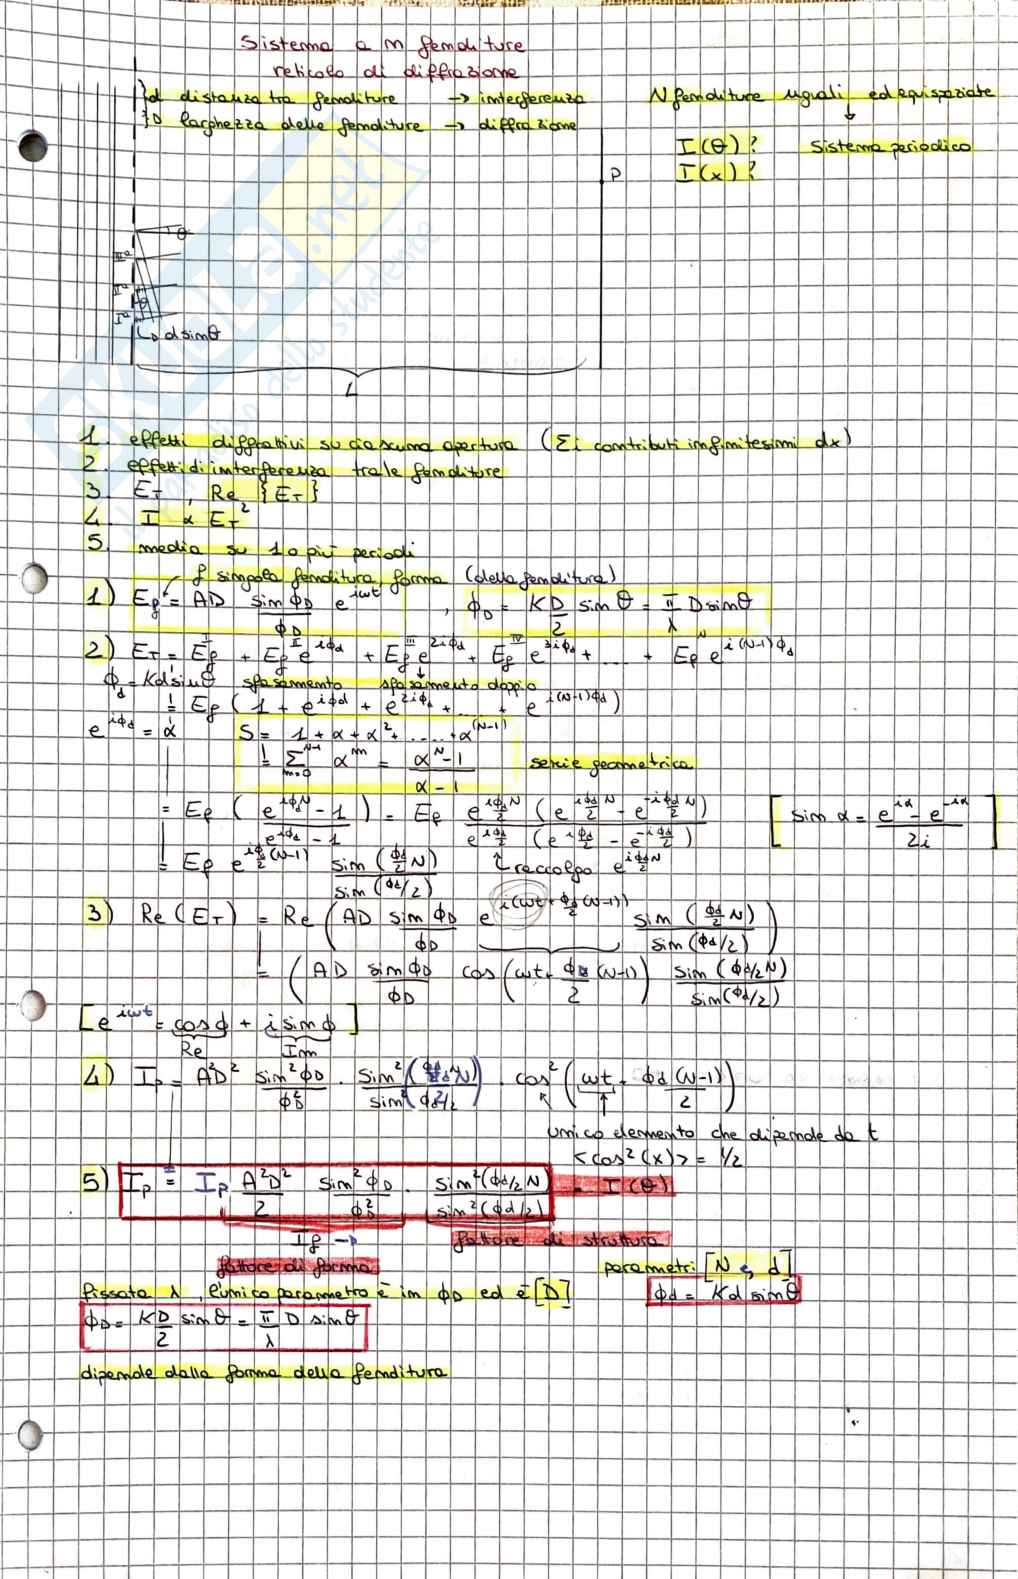 Sistema a n fenditure
reticolo di diffrazione
}d distanza tra fenditure → interferenza
}D larghezza delle fenditure → diffrazione
N fenditure uguali ed equispaziate
↓
I(θ)? Sistema periodico
I(x)?
P
θ
IIIª
IIª
θ
Iª
↳ d sinθ
L
1. effetti diffrattivi su ciascuna apertura (Σi contributi infinitesimi dx)
2. effetti di interferenza tra le fenditure
3. E_T, Re {E_T}
4. I ∝ E_T²
5. media su 1 o più periodi
f singola fenditura, forma (della fenditura)
1) E_f = AD sinϕ_D/ϕ_D e^{iωt}, ϕ_D = KD/2 sinθ = π/λ D sinθ
2) E_T = E_f^I + E_f^{II} e^{iϕd} + E_f^{III} e^{2iϕd} + E_f^{IV} e^{3iϕd} + ... + E_f^N e^{i(N-1)ϕd}
ϕ_d = Kd sinθ sfasamento sfasamento doppio
= E_f (1 + e^{iϕd} + e^{2iϕd} + ... + e^{i(N-1)ϕd})
e^{iϕd} = α S = 1 + α + α² + .... + α^{(N-1)}
= Σ_{n=0}^{N-1} α^n = (α^N - 1)/(α - 1) serie geometrica
= E_f ((e^{iϕdN} - 1)/(e^{iϕd} - 1)) = E_f e^{iϕd/2 N} (e^{iϕd/2 N} - e^{-iϕd/2 N}) / e^{iϕd/2} (e^{iϕd/2} - e^{-iϕd/2}) [sin α = (e^{iα} - e^{-iα})/2i]
= E_f e^{iϕd/2 (N-1)} sin(ϕd/2 N)/sin(ϕd/2) raccolgo e^{iϕd/2 N}
3) Re(E_T) = Re (AD sinϕ_D/ϕ_D e^{i(ωt + ϕd/2 (N-1))} sin(ϕd/2 N)/sin(ϕd/2))
= (AD sinϕ_D/ϕ_D cos(ωt + ϕd/2 (N-1)) sin(ϕd/2 N)/sin(ϕd/2)
[e^{iωt} = cosϕ + i sinϕ]
Re Im
4) I_P = A²D² sin²ϕ_D/ϕ_D² · sin²(ϕd/2 N)/sin²(ϕd/2) · cos²(ωt + ϕd(N-1)/2)
unico elemento che dipende da t
<cos²(x)> = 1/2
5) I_P = I_P A²D²/2 sin²ϕ_D/ϕ_D² · sin²(ϕd/2 N)/sin²(ϕd/2) = I(θ)
I_f → fattore di struttura
fattore di forma parametri [N e d]
fissata λ, l'unico parametro è in ϕ_D ed è [D] ϕd = Kd sinθ
ϕ_D = KD/2 sinθ = π/λ D sinθ
dipende dalla forma della fenditura